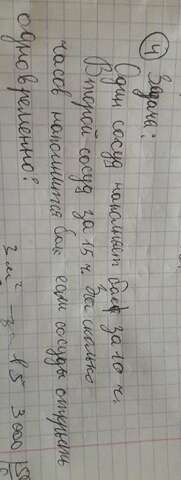 ④ Задача:
Один сосуд наполнит бак за 10 ч.
Второй сосуд за 15 ч. За сколько
часов наполнится бак если сосуды открыть
одновременно?
15 3000